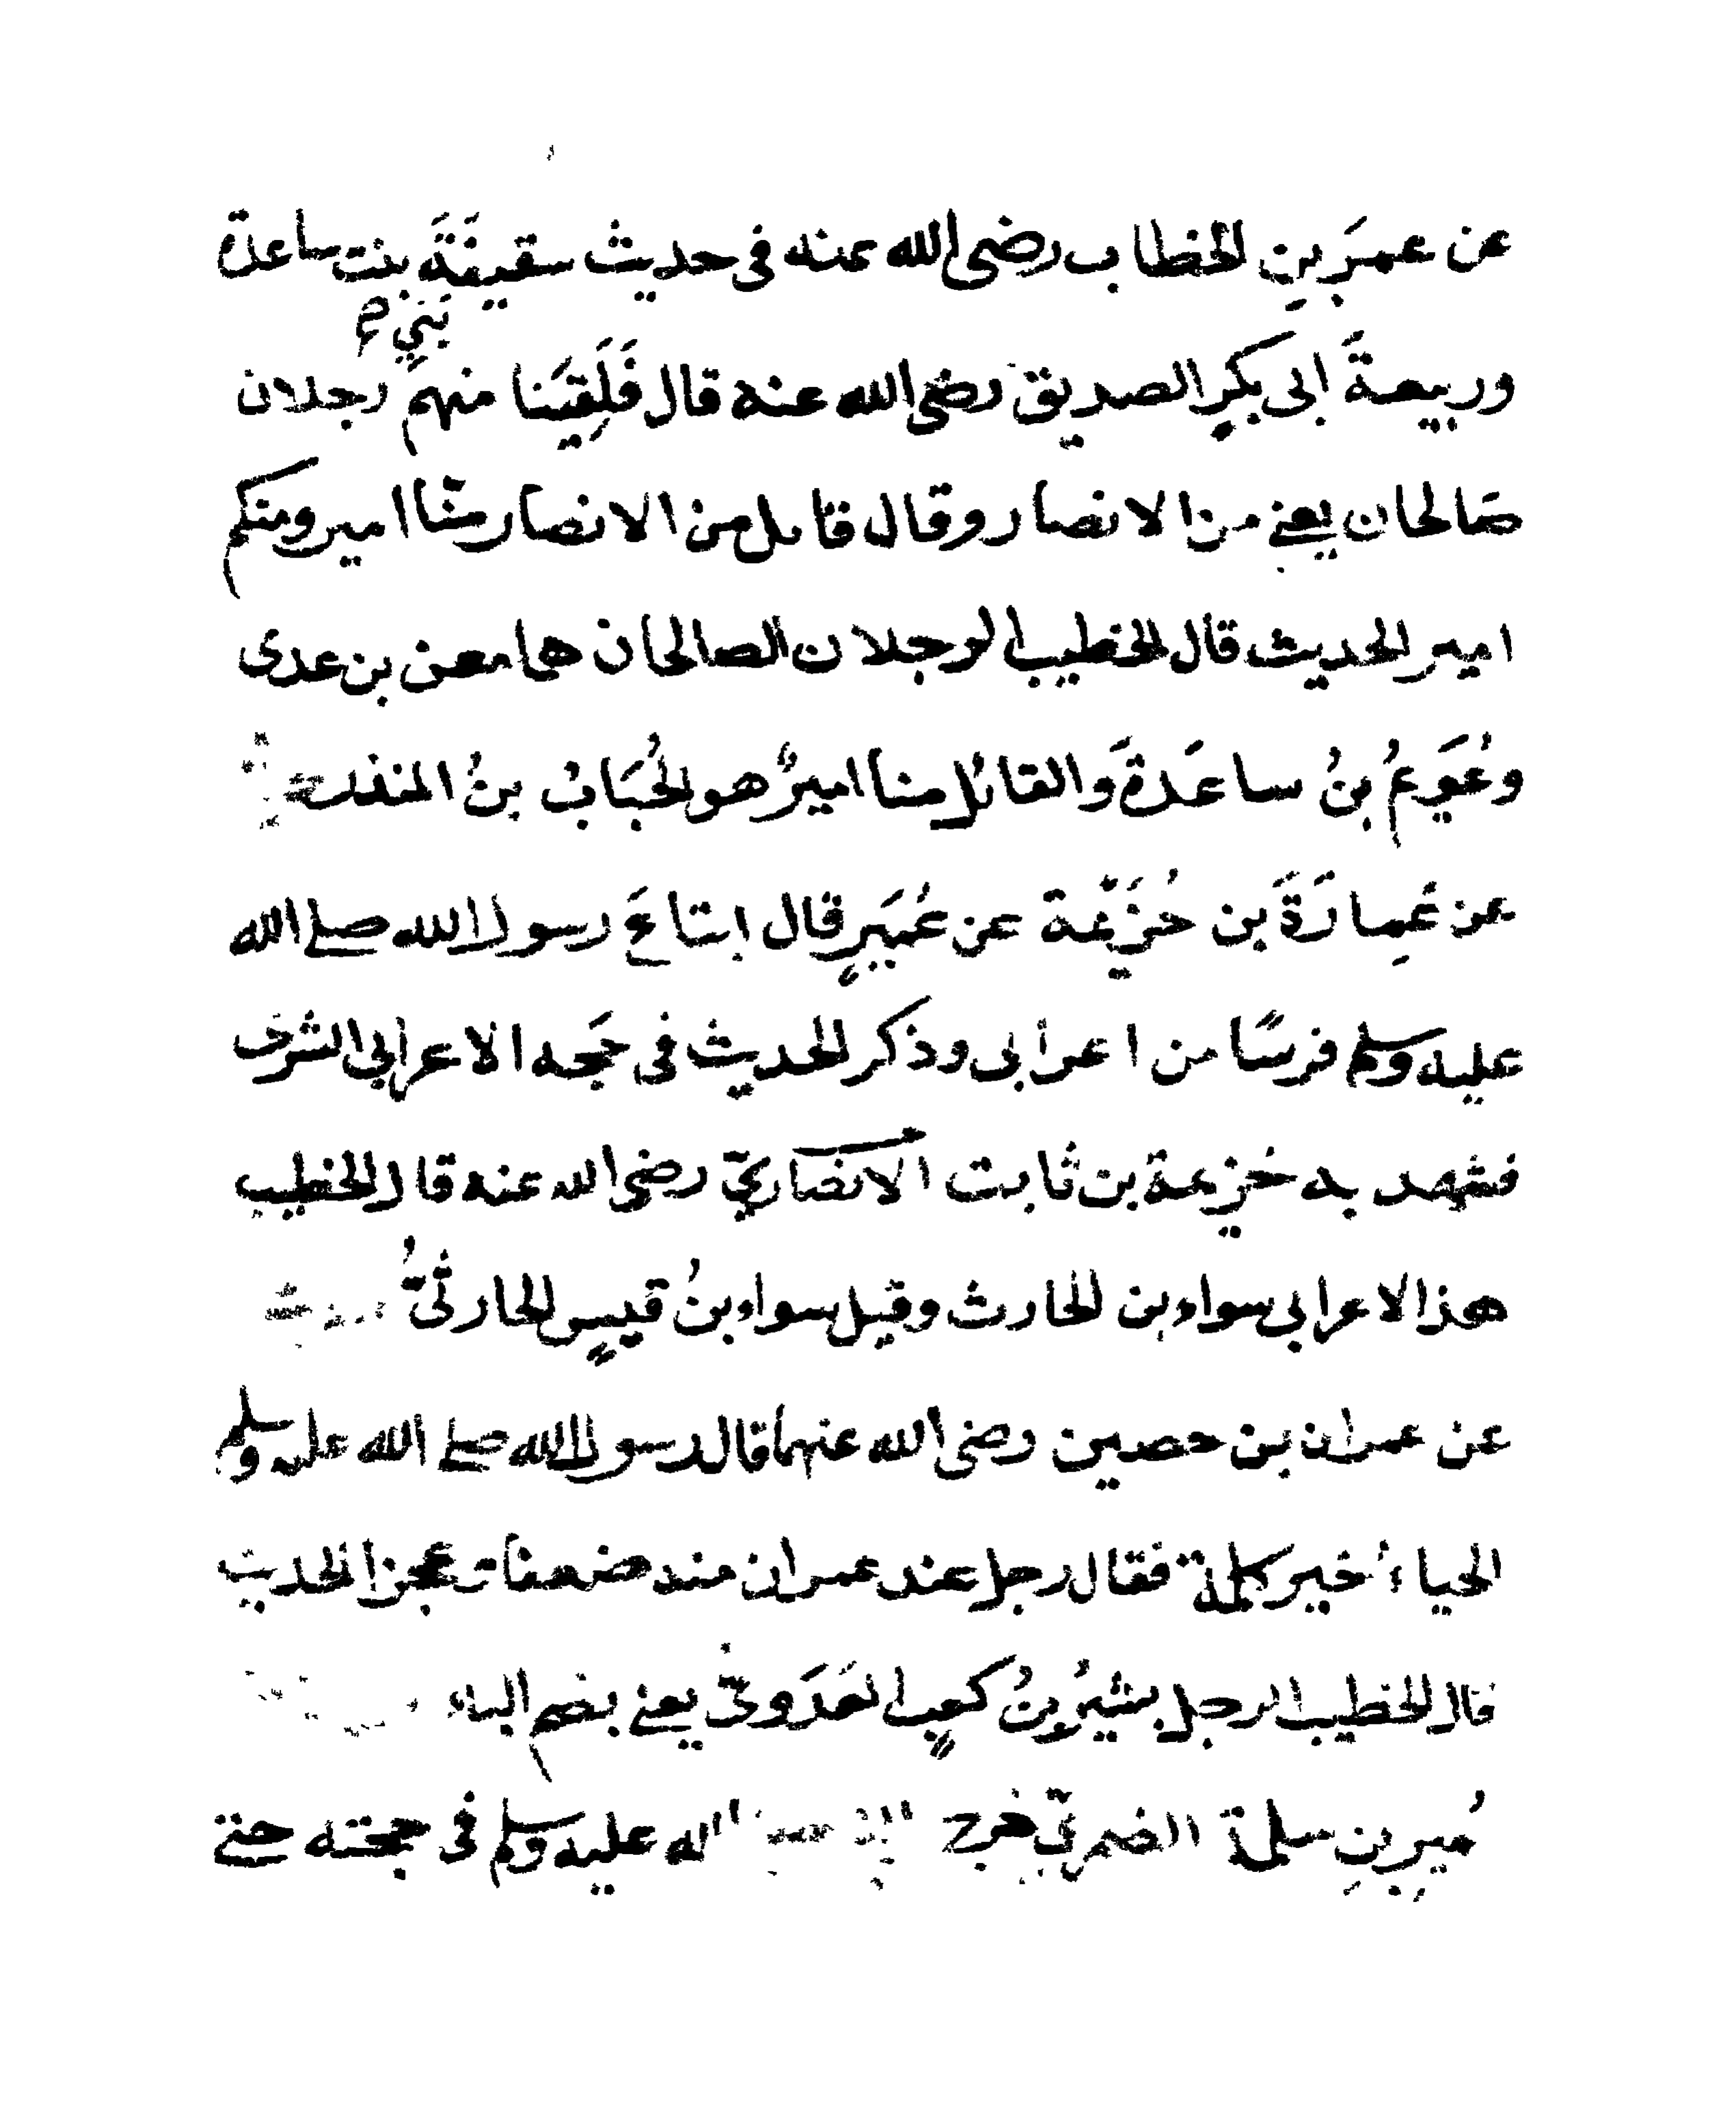 عن عمرَ بنِ الخطاب رضى الله عنه فى حديث سقيفَةَ بنت ساعدة
بَنِي صح
وربيعةَ ابى بكرٍ الصديق رضى الله عنه قال فَلَقِيَنا منهم رجلان
صَالحان يعنى من الانصار وقال قائل من الانصار منّا امير ومنكم
امير الحديث قال الخطيب الرجلان الصالحان هما معن بن عدى
وعُوَيمُ بنُ ساعَدةَ والقائل منا اميرٌ هو الحُبَابُ بنُ المنذر
عن عِمارَةَ بن خُزَيمة عن عُمَيرٍ قال ابتاعَ رسول الله صلى الله
عليه وسلم فرسًا من اعرابى وذكر الحديث فى جَحِه الاعرابى الشرى
فشهد به خزيمة بن ثابت الانصَاريّ رضى الله عنه قال الخطيب
هذا الاعرابى سواء بن الحارث وقيل سواء بنُ قيسٍ الحارثىُّ
عن عمران بن حصين رضى الله عنهما قال رسول الله صلى الله عليه وسلم
الحياءُ خير كلمة فقال رجل عند عمران منه ضعفات عجز الحديث
قال الخطيب الرجل بشيرُ بنُ كعبٍ العَدَوىّ يعنى بضم الباء
عُميرِ بنِ سلمة الضمرىّ خرج الله عليه وسلم فى حجته حتى